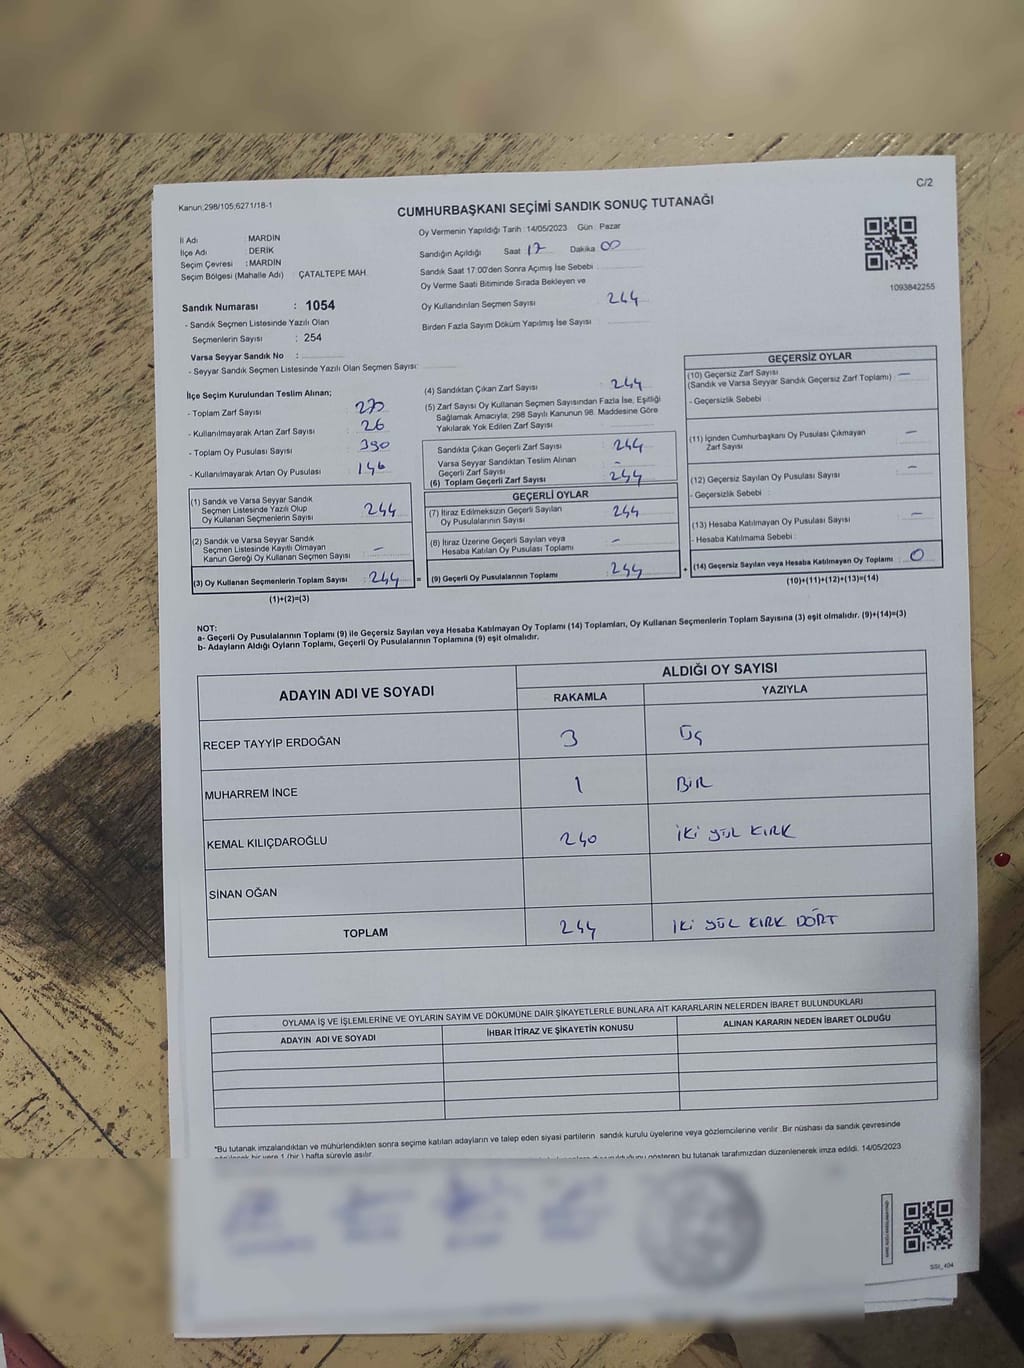 C/2
Kanun;298/105;6271/18-1
CUMHURBAŞKANI SEÇİMİ SANDIK SONUÇ TUTANAĞI
İl Adı : MARDİN
İlçe Adı : DERİK
Seçim Çevresi : MARDİN
Seçim Bölgesi (Mahalle Adı) : ÇATALTEPE MAH.
Oy Vermenin Yapıldığı Tarih : 14/05/2023 Gün : Pazar
Sandığın Açıldığı Saat 17 Dakika 00
Sandık Saat 17:00'den Sonra Açımış İse Sebebi
Oy Verme Saati Bitiminde Sırada Bekleyen ve
Oy Kullandırılan Seçmen Sayısı 244
Birden Fazla Sayım Döküm Yapılmış İse Sayısı
1093842255
Sandık Numarası : 1054
- Sandık Seçmen Listesinde Yazılı Olan
Seçmenlerin Sayısı : 254
Varsa Seyyar Sandık No :
- Seyyar Sandık Seçmen Listesinde Yazılı Olan Seçmen Sayısı:
İlçe Seçim Kurulundan Teslim Alınan;
- Toplam Zarf Sayısı : 270
- Kullanılmayarak Artan Zarf Sayısı : 26
- Toplam Oy Pusulası Sayısı : 390
- Kullanılmayarak Artan Oy Pusulası : 146
(1) Sandık ve Varsa Seyyar Sandık
Seçmen Listesinde Yazılı Olup
Oy Kullanan Seçmenlerin Sayısı : 244
(2) Sandık ve Varsa Seyyar Sandık
Seçmen Listesinde Kayıtlı Olmayan
Kanun Gereği Oy Kullanan Seçmen Sayısı : -
(3) Oy Kullanan Seçmenlerin Toplam Sayısı : 244
(1)+(2)=(3)
(4) Sandıktan Çıkan Zarf Sayısı : 244
(5) Zarf Sayısı Oy Kullanan Seçmen Sayısından Fazla İse, Eşitliği
Sağlamak Amacıyla; 298 Sayılı Kanunun 98. Maddesine Göre
Yakılarak Yok Edilen Zarf Sayısı :
Sandıkta Çıkan Geçerli Zarf Sayısı : 244
Varsa Seyyar Sandıktan Teslim Alınan
Geçerli Zarf Sayısı : -
(6) Toplam Geçerli Zarf Sayısı : 244
GEÇERLİ OYLAR
(7) İtiraz Edilmeksizin Geçerli Sayılan
Oy Pusulalarının Sayısı : 244
(8) İtiraz Üzerine Geçerli Sayılan veya
Hesaba Katılan Oy Pusulası Toplamı : -
= (9) Geçerli Oy Pusulalarının Toplamı : 244
GEÇERSİZ OYLAR
(10) Geçersiz Zarf Sayısı : -
(Sandık ve Varsa Seyyar Sandık Geçersiz Zarf Toplamı)
- Geçersizlik Sebebi :
(11) İçinden Cumhurbaşkanı Oy Pusulası Çıkmayan
Zarf Sayısı : -
(12) Geçersiz Sayılan Oy Pusulası Sayısı : -
- Geçersizlik Sebebi :
(13) Hesaba Katılmayan Oy Pusulası Sayısı : -
- Hesaba Katılmama Sebebi :
+ (14) Geçersiz Sayılan veya Hesaba Katılmayan Oy Toplamı : 0
(10)+(11)+(12)+(13)=(14)
NOT:
a- Geçerli Oy Pusulalarının Toplamı (9) ile Geçersiz Sayılan veya Hesaba Katılmayan Oy Toplamı (14) Toplamları, Oy Kullanan Seçmenlerin Toplam Sayısına (3) eşit olmalıdır. (9)+(14)=(3)
b- Adayların Aldığı Oyların Toplamı, Geçerli Oy Pusulalarının Toplamına (9) eşit olmalıdır.
ADAYIN ADI VE SOYADI
ALDIĞI OY SAYISI
RAKAMLA YAZIYLA
RECEP TAYYİP ERDOĞAN 3 Üç
MUHARREM İNCE 1 BİR
KEMAL KILIÇDAROĞLU 240 İKİ YÜZ KIRK
SİNAN OĞAN
TOPLAM 244 İKİ YÜZ KIRK DÖRT
OYLAMA İŞ VE İŞLEMLERİNE VE OYLARIN SAYIM VE DÖKÜMÜNE DAİR ŞİKAYETLERLE BUNLARA AİT KARARLARIN NELERDEN İBARET BULUNDUKLARI
ADAYIN ADI VE SOYADI İHBAR İTİRAZ VE ŞİKAYETİN KONUSU ALINAN KARARIN NEDEN İBARET OLDUĞU
*Bu tutanak imzalandıktan ve mühürlendikten sonra seçime katılan adayların ve talep eden siyasi partilerin sandık kurulu üyelerine veya gözlemcilerine verilir. Bir nüshası da sandık çevresinde
bir yere 1 (bir) hafta süreyle asılır.
gösteren bu tutanak tarafımızdan düzenlenerek imza edildi. 14/05/2023